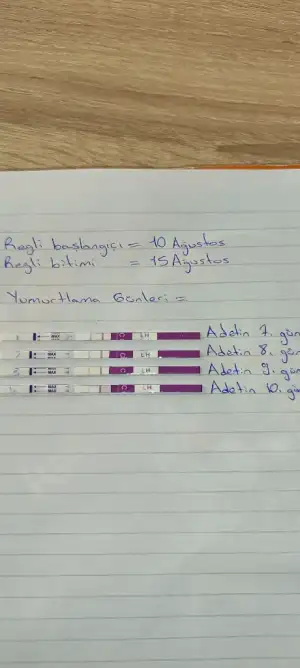 Regli başlangıçı = 10 Ağustos
Regli bitimi = 15 Ağustos
Yumurtlama Günleri =
1 MAX LH Adetin 7. gün
2 MAX LH Adetin 8. gün
3 MAX LH Adetin 9. gün
MAX LH Adetin 10. gün